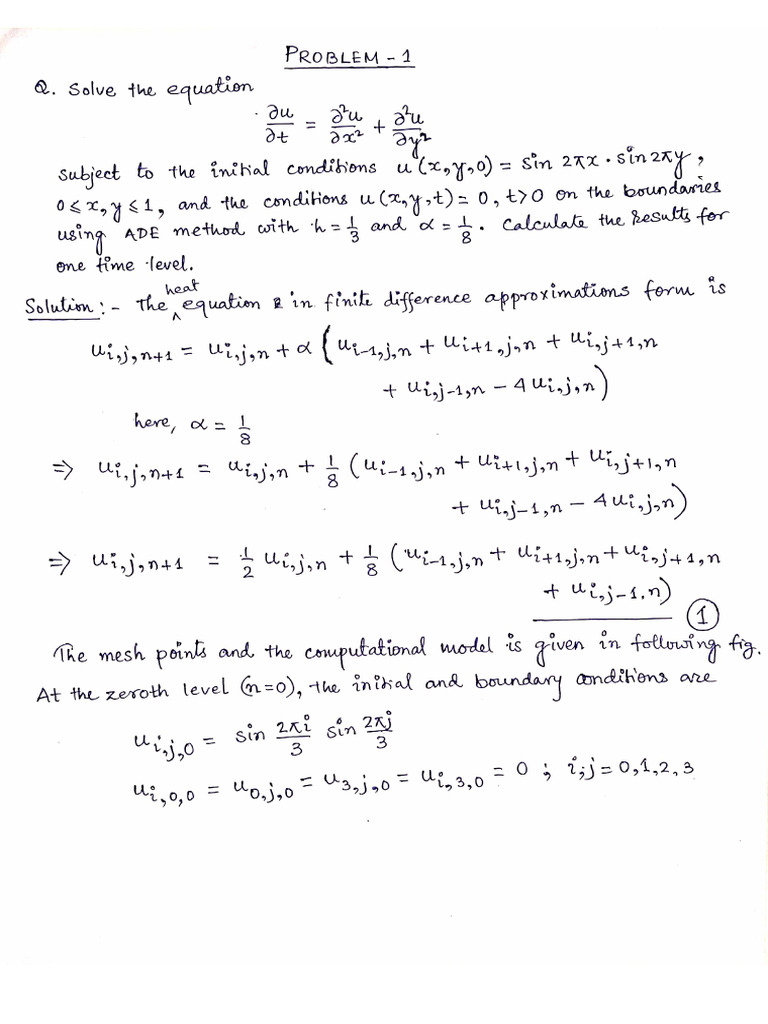 PROBLEM - 1
Q. Solve the equation
∂u/∂t = ∂²u/∂x² + ∂²u/∂y²
subject to the initial conditions u(x,y,0) = sin 2πx · sin 2πy,
0 ≤ x, y ≤ 1, and the conditions u(x,y,t) = 0, t > 0 on the boundaries
using ADE method with h = 1/3 and α = 1/8. Calculate the results for
one time level.
Solution :- The heat equation in finite difference approximations form is
u_{i,j,n+1} = u_{i,j,n} + α (u_{i-1,j,n} + u_{i+1,j,n} + u_{i,j+1,n}
+ u_{i,j-1,n} - 4u_{i,j,n})
here, α = 1/8
⇒ u_{i,j,n+1} = u_{i,j,n} + 1/8 (u_{i-1,j,n} + u_{i+1,j,n} + u_{i,j+1,n}
+ u_{i,j-1,n} - 4u_{i,j,n})
⇒ u_{i,j,n+1} = 1/2 u_{i,j,n} + 1/8 (u_{i-1,j,n} + u_{i+1,j,n} + u_{i,j+1,n}
+ u_{i,j-1,n})
①
The mesh points and the computational model is given in following fig.
At the zeroth level (n=0), the initial and boundary conditions are
u_{i,j,0} = sin 2πi/3 sin 2πj/3
u_{i,0,0} = u_{0,j,0} = u_{3,j,0} = u_{i,3,0} = 0 ; i,j = 0,1,2,3